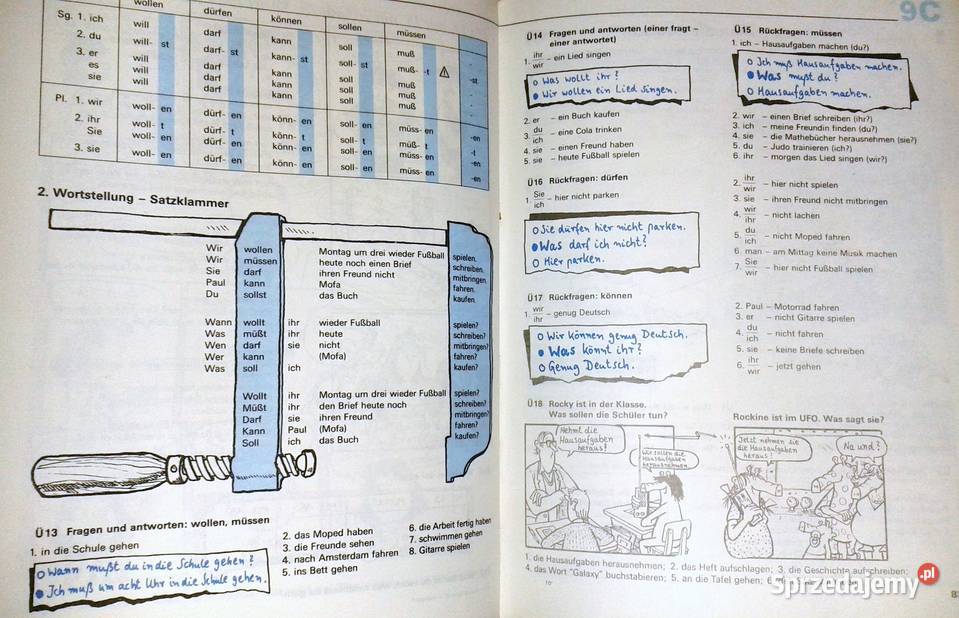 wollen dürfen können sollen müssen
Sg. 1. ich will darf kann soll muß -
2. du will- st darf- st kann- st soll- st muß- -t -st
3. er will darf kann soll muß -
es will darf kann soll muß -
sie will darf kann soll muß -
Pl. 1. wir woll- en dürf- en könn- en soll- en müss- en -en
2. ihr woll- t dürf- t könn- t soll- t müß- t -t
Sie woll- en dürf- en könn- en soll- en müss- en -en
3. sie woll- en dürf- en könn- en soll- en müss- en -en
2. Wortstellung – Satzklammer
Wir wollen Montag um drei wieder Fußball spielen.
Wir müssen heute noch einen Brief schreiben.
Sie darf ihren Freund nicht mitbringen.
Paul kann Mofa fahren.
Du sollst das Buch kaufen.
Wann wollt ihr wieder Fußball spielen?
Was müßt ihr heute schreiben?
Wen darf sie nicht mitbringen?
Wer kann (Mofa) fahren?
Was soll ich kaufen?
Wollt ihr Montag um drei wieder Fußball spielen?
Müßt ihr den Brief heute noch schreiben?
Darf sie ihren Freund mitbringen?
Kann Paul (Mofa) fahren?
Soll ich das Buch kaufen?
Ü13 Fragen und antworten: wollen, müssen
1. in die Schule gehen
o Wann mußt du in die Schule gehen?
● Ich muß um acht Uhr in die Schule gehen.
2. das Moped haben
3. die Freunde sehen
4. nach Amsterdam fahren
5. ins Bett gehen
6. die Arbeit fertig haben
7. schwimmen gehen
8. Gitarre spielen
9C
Ü14 Fragen und antworten (einer fragt –
einer antwortet)
1. ihr/wir – ein Lied singen
o Was wollt ihr?
● Wir wollen ein Lied singen.
2. er – ein Buch kaufen
3. du/ich – eine Cola trinken
4. sie – einen Freund haben
5. sie – heute Fußball spielen
Ü15 Rückfragen: müssen
1. ich – Hausaufgaben machen (du?)
o Ich muß Hausaufgaben machen.
● Was mußt du?
o Hausaufgaben machen.
2. wir – einen Brief schreiben (ihr?)
3. ich – meine Freundin finden (du?)
4. sie – die Mathebücher herausnehmen (sie?)
5. du – Judo trainieren (ich?)
6. ihr – morgen das Lied singen (wir?)
Ü16 Rückfragen: dürfen
1. Sie/ich – hier nicht parken
o Sie dürfen hier nicht parken.
● Was darf ich nicht?
o Hier parken.
2. ihr/wir – hier nicht spielen
3. sie – ihren Freund nicht mitbringen
4. wir/ihr – nicht lachen
5. du/ich – nicht Moped fahren
6. man – am Mittag keine Musik machen
7. Sie/wir – hier nicht Fußball spielen
Ü17 Rückfragen: können
1. wir/ihr – genug Deutsch
o Wir können genug Deutsch.
● Was könnt ihr?
o Genug Deutsch.
2. Paul – Motorrad fahren
3. er – nicht Gitarre spielen
4. du/ich – nicht fahren
5. sie – keine Briefe schreiben
6. ihr/wir – jetzt gehen
Ü18 Rocky ist in der Klasse.
Was sollen die Schüler tun?
Nehmt die
Hausaufgaben
heraus!
Wir sollen die
Hausaufgaben
herausnehmen.
Rockine ist im UFO. Was sagt sie?
Jetzt nehmen sie
die Hausaufgaben
heraus!
Na und?
1. die Hausaufgaben herausnehmen; 2. das Heft aufschlagen; 3. die Geschichte aufschreiben;
4. das Wort "Galaxy" buchstabieren; 5. an die Tafel gehen; 6.
Sprzedajemy.pl